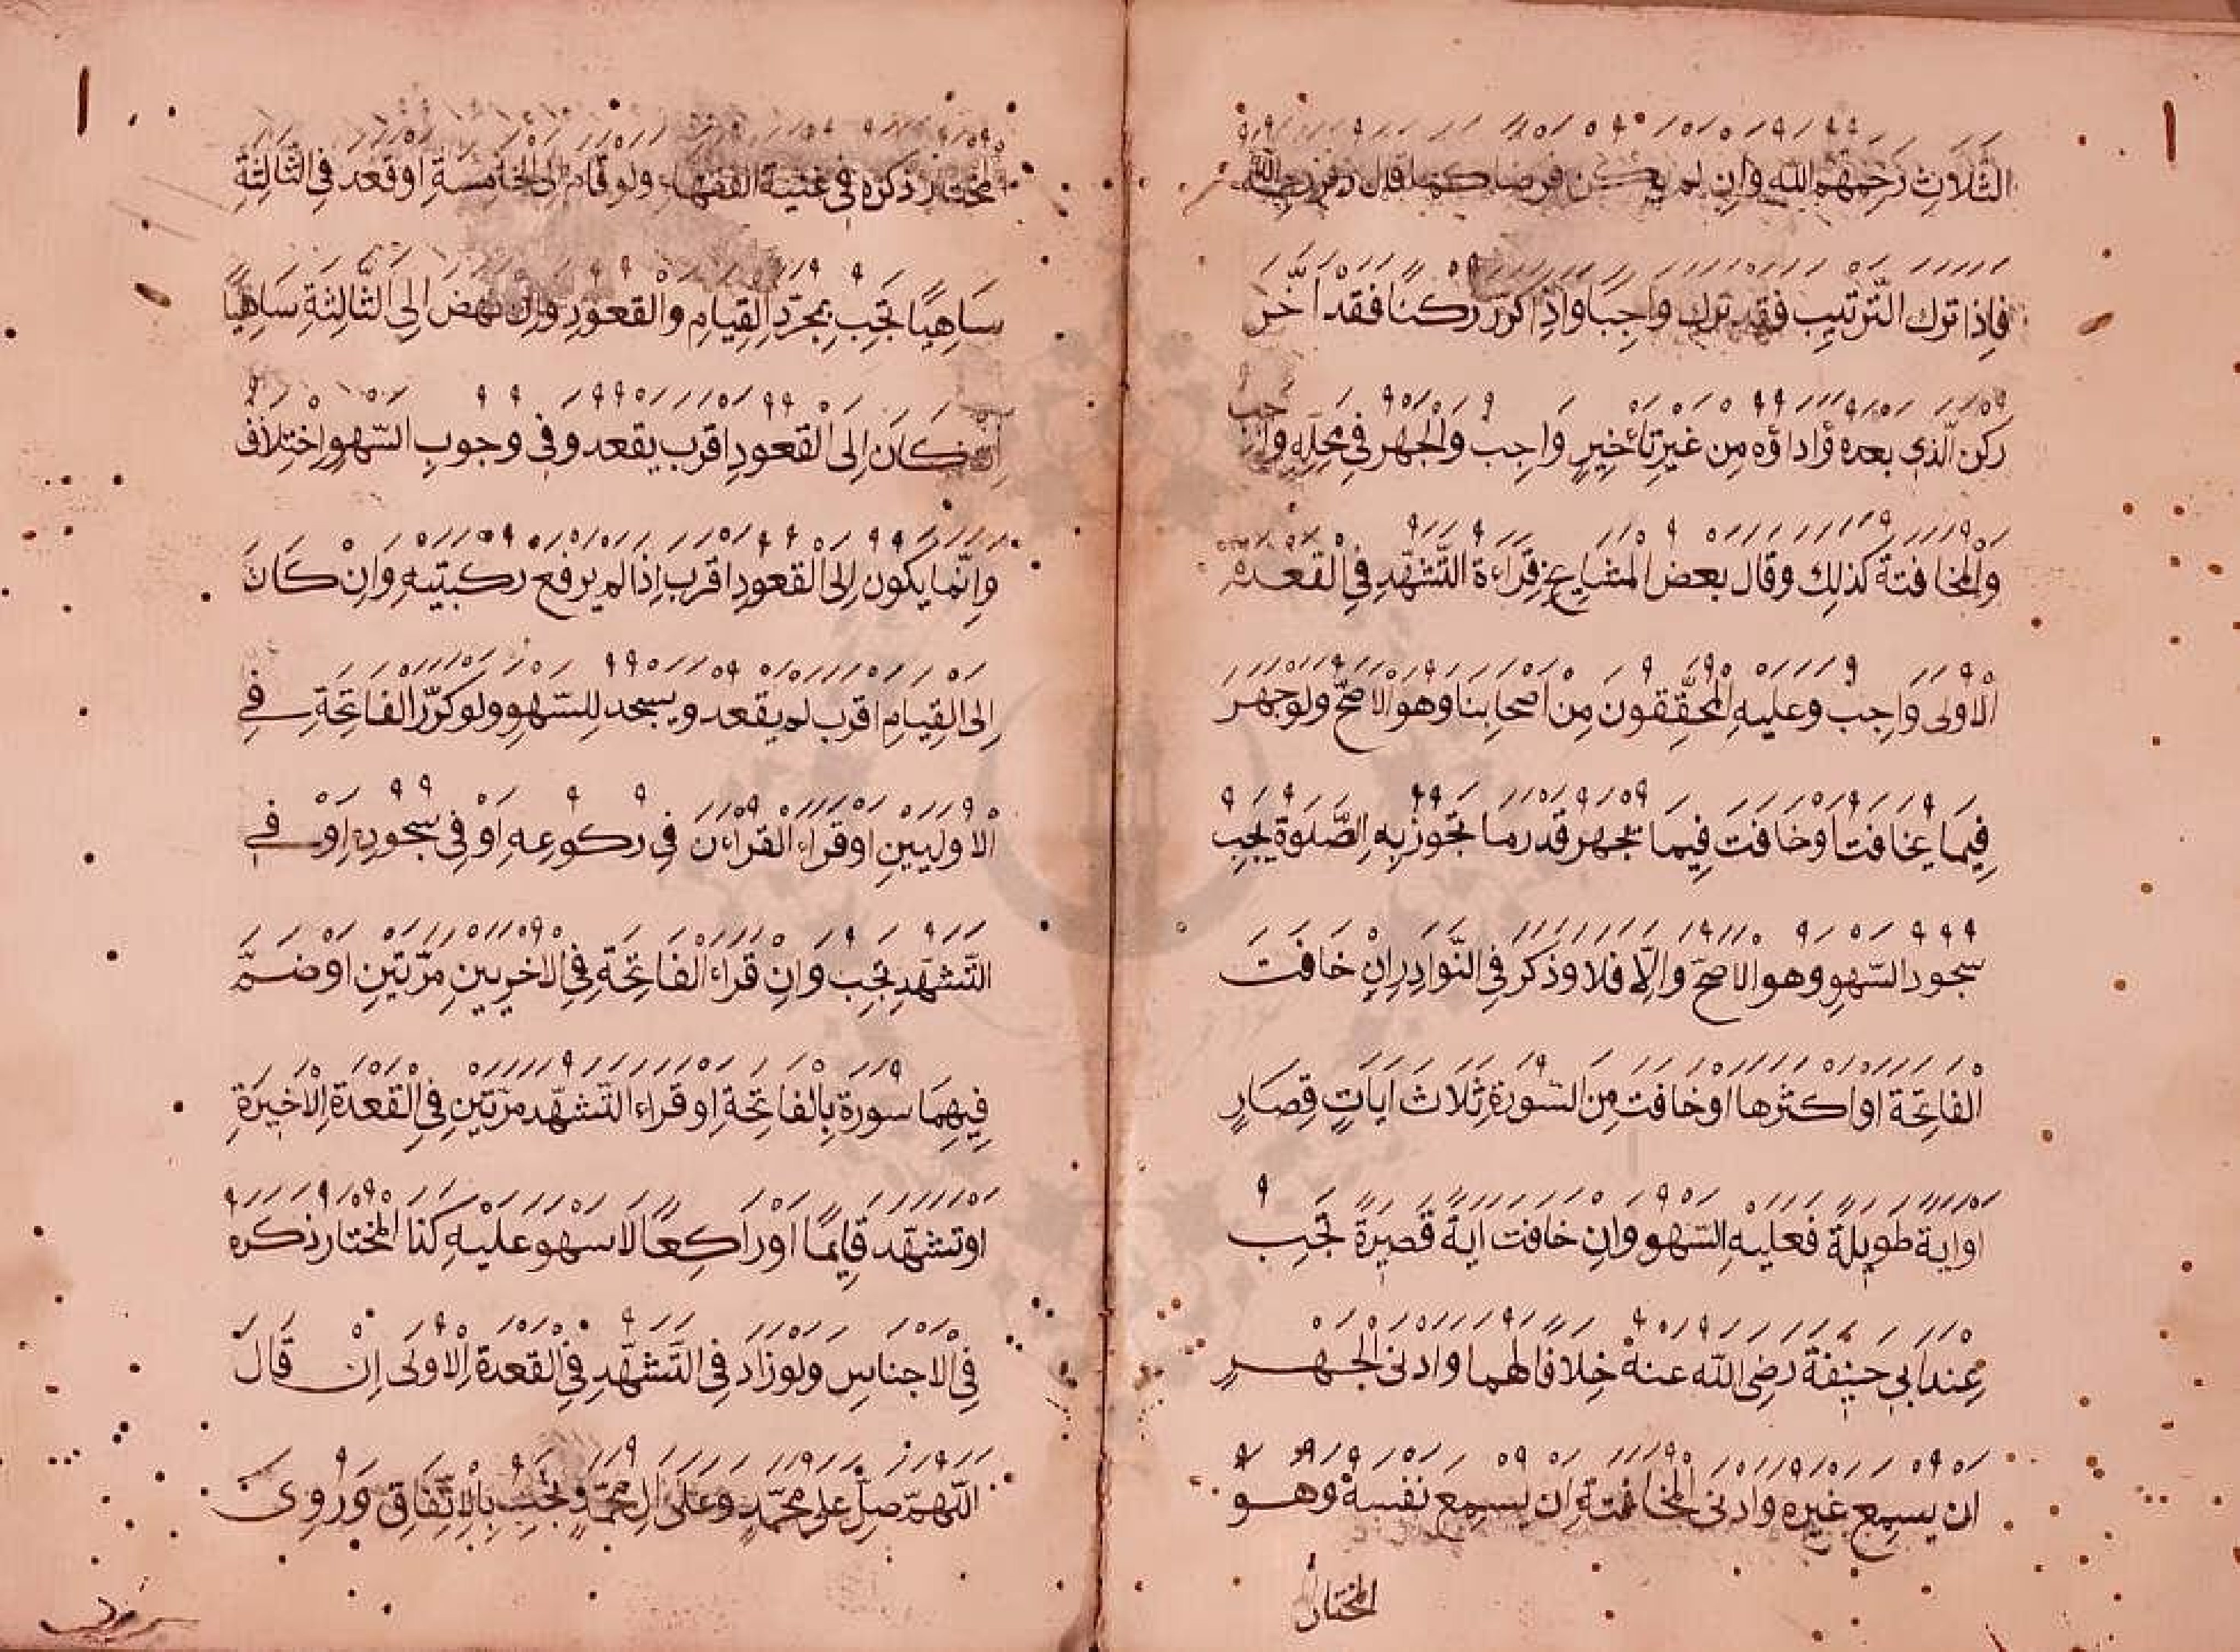 الثَّلاثِ رَحِمَهُمُ اللّه وَاِن لم يكن فرضا كما قال زفر رحمه الله
فاِذا ترك الَّترتيِب فقد ترك واجِبًا واذِا كرّر ركنًا فقد اَخَّرَ
ركن الَّذي بعده وَّاداؤه مِن غيرِ تاْخيرٍ وَاجِب وَالجهر في مَحِلِّهِ واجب
والمخافتة كذلِك وقال بعض المشايِخ قِراءة التَّشهّدِ فِي القعدة
الاولى وَاجِب وعليهِ المُحقِّقون مِن اَصحابِنا وهو الاصحّ ولو جهر
فِيما يخافت اَوخافت فِيما يجهر قدر ما تجوز بِهِ الصَّلوة يجب
سجود السّهوِ وهو الاصحّ والِاّ فلا وذكر فِي النَّوادِرِ اِنْ خافت
الفاتِحة او اكثرها اوخافت مِن السّورةِ ثلاث اياتٍ قِصارٍ
اواية طويلة فعليهِ السّهو واِن خافت اية قصيرة تجِب
عِند ابي حنِيفة رضِى اللّه عنهُ خِلافا لهما وادنى الجهرِ
ان يسمِع غيره وادنى المخافتةِ ان يسمِع نفسه وهو
المختار
المختار ذكره في غنية الفقهاء ولو قام الى الخامسةِ او قعد في الثَّالِثةِ
سَاهِيًا تجِب بِمجرّدِ القِيامِ والقعودِ واِن نهض اِلى الثَّالِثةِ ساهِيًا
اِن كان اِلى القعودِ اقرب يقعد وفي وجوبِ السّهوِ اِختِلاف
واِنَّما يكون اِلى القعودِ اقرب اِذا لم يرفع ركبتيهِ واِنْ كان
اِلى القِيامِ اقرب لم يقعد ويسجد لِلسّهوِ ولو كرّر الفاتِحة فِي
الاوليينِ اوقراء القراٰن في ركوعِهِ اَوْ في سجودِهِ اَوْ فِي
التّشهّدِ تجِب واِن قراء الفاتِحة فِي الاخرِيينِ مرّتينِ اوضمّ
فِيهِما سورة بِالفاتِحةِ اوقراء التّشهّد مرّتينِ فِي القعدةِ الاخيرةِ
اوتشهّد قايِمًا اوراكِعًا لا سهو عليهِ كذا المختار ذكره
فِي الاجناسِ ولو زاد فِي التَّشهّدِ فِي القعدة الاولى اِنْ قال
اللّهمّ صلِّ على محمّدٍ وعلى الِ محمّدٍ تجِب بِالاِتِّفاقِ ورُوِيَ